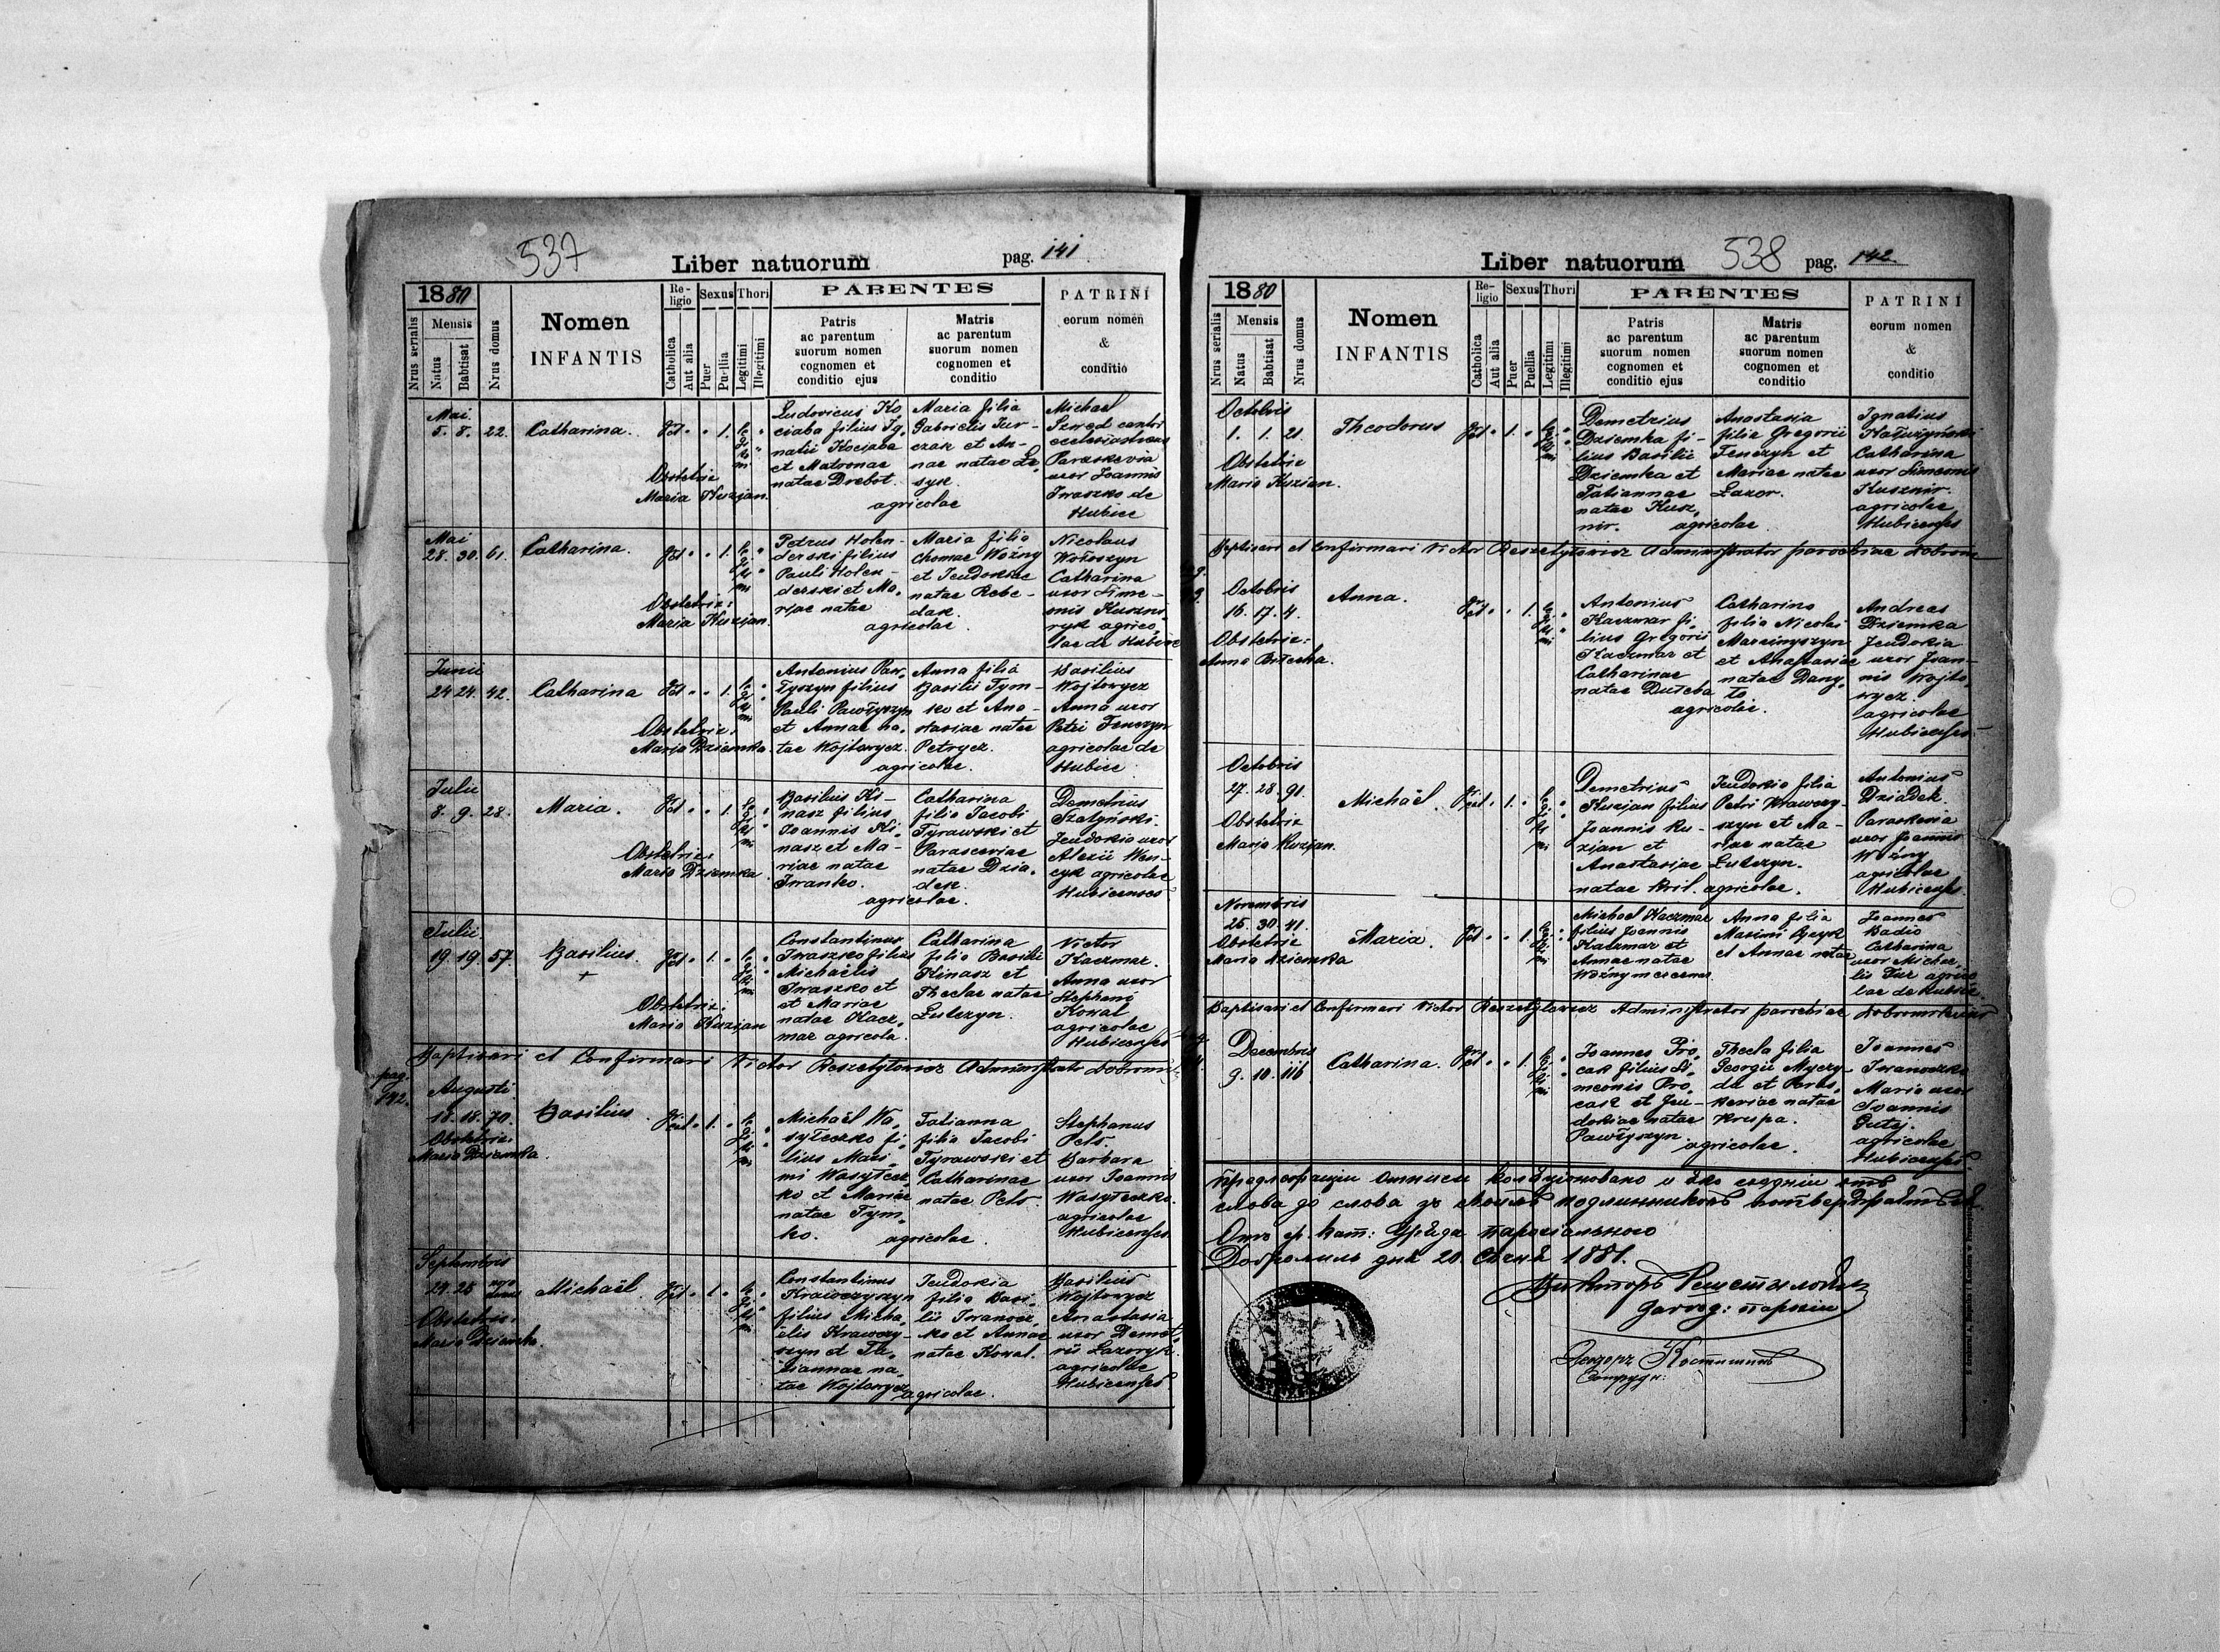 537
Liber natuorum
pag. 141
1880
Nrus serialis
Mensis
Natus
Babtisat
Nrus domus
Nomen
INFANTIS
Religio
Catholica
Aut alia
Sexus
Puer
Puella
Thori
Legitimi
Illegitimi
PARENTES
Patris
ac parentum
suorum nomen
cognomen et
conditio ejus
Matris
ac parentum
suorum nomen
cognomen et
conditio
PATRINI
eorum nomen
&
conditio
Mai
5. 8. 22.
Catharina.
1.
Obstetrix
Maria Kuzian.
Ludovicus Ko,
ciaba filius Ig,
natii Kociaba
et Matronae
natae Drebot.
agricolae
Maria filia
Gabrielis Jur-
czak et An-
nae natae Le,
syk.
Michael
ecclesiasticus
Paraskevia
uxor Joannis
Iwaszko de
Hubice
Mai
28. 30. 61.
Catharina.
1.
Obstetrix:
Maria Kuzian.
Petrus Holen-
derski filius
Pauli Holen-
derski et Ma,
riae natae
agricolae.
Maria filia
Thomae Woźny
et Jeudokiae
natae Rebe-
dak.
Nicolaus
Wołoszyn
Catharina
uxor Sime-
onis
agrico,
lae de Hubice
Junii
24. 24. 42.
Catharina
1.
Obstetrix:
Maria Dziemka.
Antonius Paw,
łyszyn filius
Pauli Pawłyszyn
et Annae na,
tae Wojtowycz.
agricolae.
Anna filia
Basilii Tym-
ko et Ana-
stasiae natae
Petrycz.
Basilius
Wojtowycz
Anna uxor
Petri Fenczyn
agricolae de
Hubice
Julii
8. 9. 28.
Maria.
1.
Obstetrix:
Maria Dziemka.
Basilius Ki-
nasz filius
Joannis Ki,
nasz et Ma-
riae natae
Iwanko.
agricolae.
Catharina
filia Jacobi
Tyrawski et
Parasceviae
natae Dzia,
dek.
Demetrius
Jeudokia uxor
Alexii Wen-
cyk agricolae
Hubicenses
Julii
19. 19. 57.
Basilius.
+
1.
Obstetrix:
Maria Kuzian
Constantinus
Iwaszko filius
Michaëlis
Iwaszko et
et Mariae
natae Kacz,
mar agricola.
Catharina
filia Basilii
Kinasz et
Theclae natae
Lulczyn.
Victor
Kaczmar.
Anna uxor
Stephani
Kowal
agricolae
Hubicenses
Baptisavi et Confirmavi Victor Reszetylowicz Administrator
pag.
142.
Augusti
18. 18. 70.
Basilius.
1.
Obstetrix:
Maria Dziemka.
Michaël Wa,
syłeczko fi,
lius Maxi,
mi Wasyłecz
ko et Mariae
natae Tym,
ko.
agricolae.
Tatianna
filia Jacobi
Tyrawski et
Catharinae
natae Pelo.
Stephanus
Pelo.
Barbara
uxor Joannis
Wasyłeczko.
agricolae
Hubicenses
Septembris
Michaël
1.
Obstetrix:
Maria Dziemka.
Constantinus
Krawczyszyn
filius Micha,
ëlis Krawczy-
szyn et Ta,
tiannae na,
tae Wojtowycz
agricolae.
Jeudokia
filia Basi,
lii Iwanocz,
ko et Annae
natae Kowal.
Basilius
Wojtowycz
Anastasia
uxor Demet,
rii Lazoryk.
agricolae
Hubicenses
Liber natuorum
538
pag. 142.
1880
Nrus serialis
Mensis
Natus
Babtisat
Nrus domus
Nomen
INFANTIS
Religio
Catholica
Aut alia
Sexus
Puer
Puella
Thori
Legitimi
Illegitimi
PARENTES
Patris
ac parentum
suorum nomen
cognomen et
conditio ejus
Matris
ac parentum
suorum nomen
cognomen et
conditio
PATRINI
eorum nomen
&
conditio
Octobris
1. 1. 21.
Theodorus
1.
Obstetrix
Maria Kuzian.
Demetrius
Dziemka fi-
lius Basilii
Dziemka et
Tatiannae
natae Kusz,
nir.
agricolae.
Anastasia
filia Gregorii
Fenczyn et
Mariae natae
Lazor.
Ignatius
Catharina
uxor Simeonis
Kusznir.
agricolae
Hubicenses
Baptisavi et Confirmavi Victor Reszetylowicz Administrator parochiae
Octobris
16. 17. 4.
Anna.
1.
Obstetrix:
Antonius
Kaczmar fi,
lius Gregorii
Kaczmar et
Catharinae
natae Duteba
agricolae.
Catharina
filia Nicolai
Marcinyszyn
et Anastasiae
natae Dany,
ło.
Andreas
Dziemka
Jeudokia
uxor Joan-
nis Wojto,
wycz.
agricolae
Hubicenses
Octobris
27. 28. 91.
Michaël.
1.
Obstetrix
Maria Kuzian.
Demetrius
Kuzjan filius
Joannis Ku-
zian et
Anastasiae
natae Bril.
agricolae.
Jeudokia filia
Petri Krawczy-
szyn et Ma-
riae natae
Lulczyn.
Antonius
Dziadek.
Paraskevia
uxor Joannis
Woźny
agricolae
Hubicenses.
Novembris
25. 30. 41.
Maria.
1.
Obstetrix
Maria Dziemka
Michael Kaczmar
filius Joannis
Kaczmar et
Annae natae
Woźny
Anna filia
Maximi
et Annae natae
Joannes
Badio
Catharina
uxor Michae,
lis
agrico
lae de Hubice.
Baptisavi et Confirmavi Victor Reszetylowicz Administrator parochiae Dobromiliensis
Decembris
9. 10. 116
Catharina.
1.
Joannes Pro,
cak filius Si,
meonis Pro,
cak et Jeu-
dokiae natae
Pawłyszyn.
agricolae.
Thecla filia
Georgii Myczy-
da et Paras-
keviae natae
Krupa.
Joannes
Iwanoczko
Maria uxor
Joannis
Gutej.
agricolae
Hubicenses.
слова до слова зо своимъ подлинникомъ
Отъ гр. кат: Уряда парохіального
Добромиль дня 20. 1881.
Викторъ
Сотрудн: